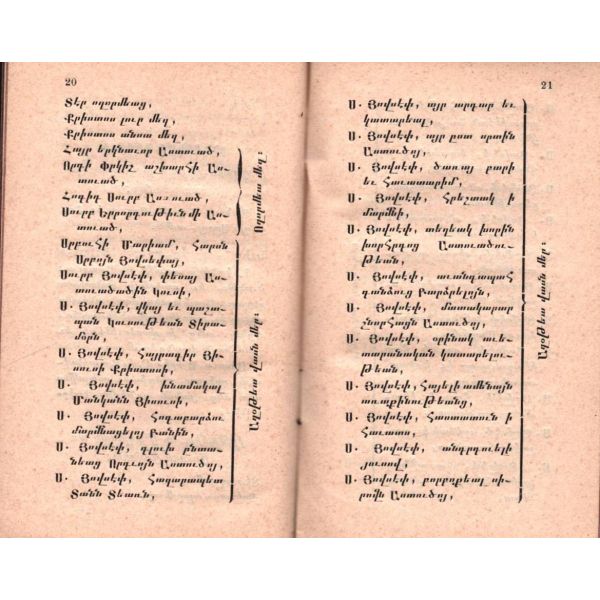 20
Տէր ողորմեաց,
Քրիստոս լուր մեզ,
Քրիստոս անսա մեզ,
Հայր երկնաւոր Աստուած,
Որդի Փրկիչ աշխարհի Աս-
տուած,
Հոգիդ Սուրբ Աստուած,
Սուրբ Երրորդութիւնմի Աս-
տուած,
Ողորմեա մեզ։
Սրբուհի Մարիամ, Հարսն
Սրբոյն Յովսեփայ,
Սուրբ Յովսէփ, փեսայ Աս-
տուածածին Կուսի,
Ս. Յովսէփ, վկայ եւ պաշա-
պան Կուսութեան Տիրա-
մօրն,
Ս. Յովսէփ, Հայրագիր Յի-
սուսի Քրիստոսի,
Ս. Յովսէփ, խնամակալ
Մանկանն Յիսուսի,
Ս. Յովսէփ, Հոգաբարձու
մարմնացելոյ Բանին,
Ս. Յովսէփ, գլուխ ընտա-
նեաց Որդւոյն Աստուծոյ,
Ս. Յովսէփ, Հազարապետ
Տանն Տեառն,
Աղօթեա վասն մեր։
21
Ս. Յովսէփ, այր արդար եւ
կատարեալ,
Ս. Յովսէփ, այր ըստ սրտին
Աստուծոյ,
Ս. Յովսէփ, ծառայ բարի
եւ Հաւատարիմ,
Ս. Յովսէփ, Հրեշտակ ի
մարմնի,
Ս. Յովսէփ, տեղեակ խորին
խորհրդոց Աստուածու-
թեան,
Ս. Յովսէփ, աւանդապահ
գանձուց Բարձրելոյն,
Ս. Յովսէփ, մատակարար
շնորհացն Աստուծոյ,
Ս. Յովսէփ, օրինակ աւե-
տարանական կատարելու-
թեան,
Ս. Յովսէփ, Հայելի ամենայն
առաքինութեանց,
Ս. Յովսէփ, Հաստատուն ի
Հաւատս,
Ս. Յովսէփ, անդրդուելի
յուսով,
Ս. Յովսէփ, բորբոքեալ սի-
րովն Աստուծոյ,
Աղօթեա վասն մեր։